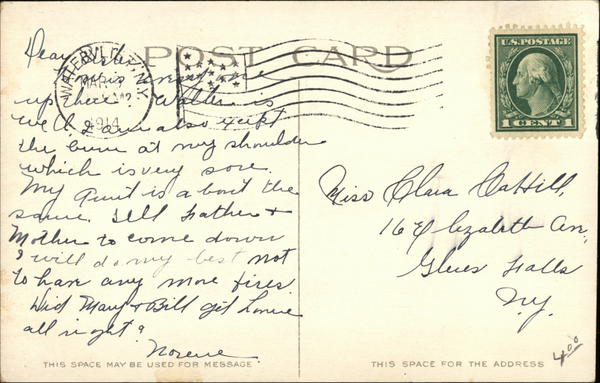 POST CARD
WATERVLIET, N.Y.
MAR
1914
U.S. POSTAGE
1 CENT 1
Dear Sister
up here. Walter is
well I am also except
the burn at my shoulder
which is very sore.
My Aunt is about the
same. Tell Father +
Mother to come down
I will do my best not
to have any more fires.
Did Mary + Bill get home
all right?
Norene
Miss Clara Cahill,
16 Elizabeth An,
Glens Falls
N.Y.
4.00
THIS SPACE MAY BE USED FOR MESSAGE
THIS SPACE FOR THE ADDRESS